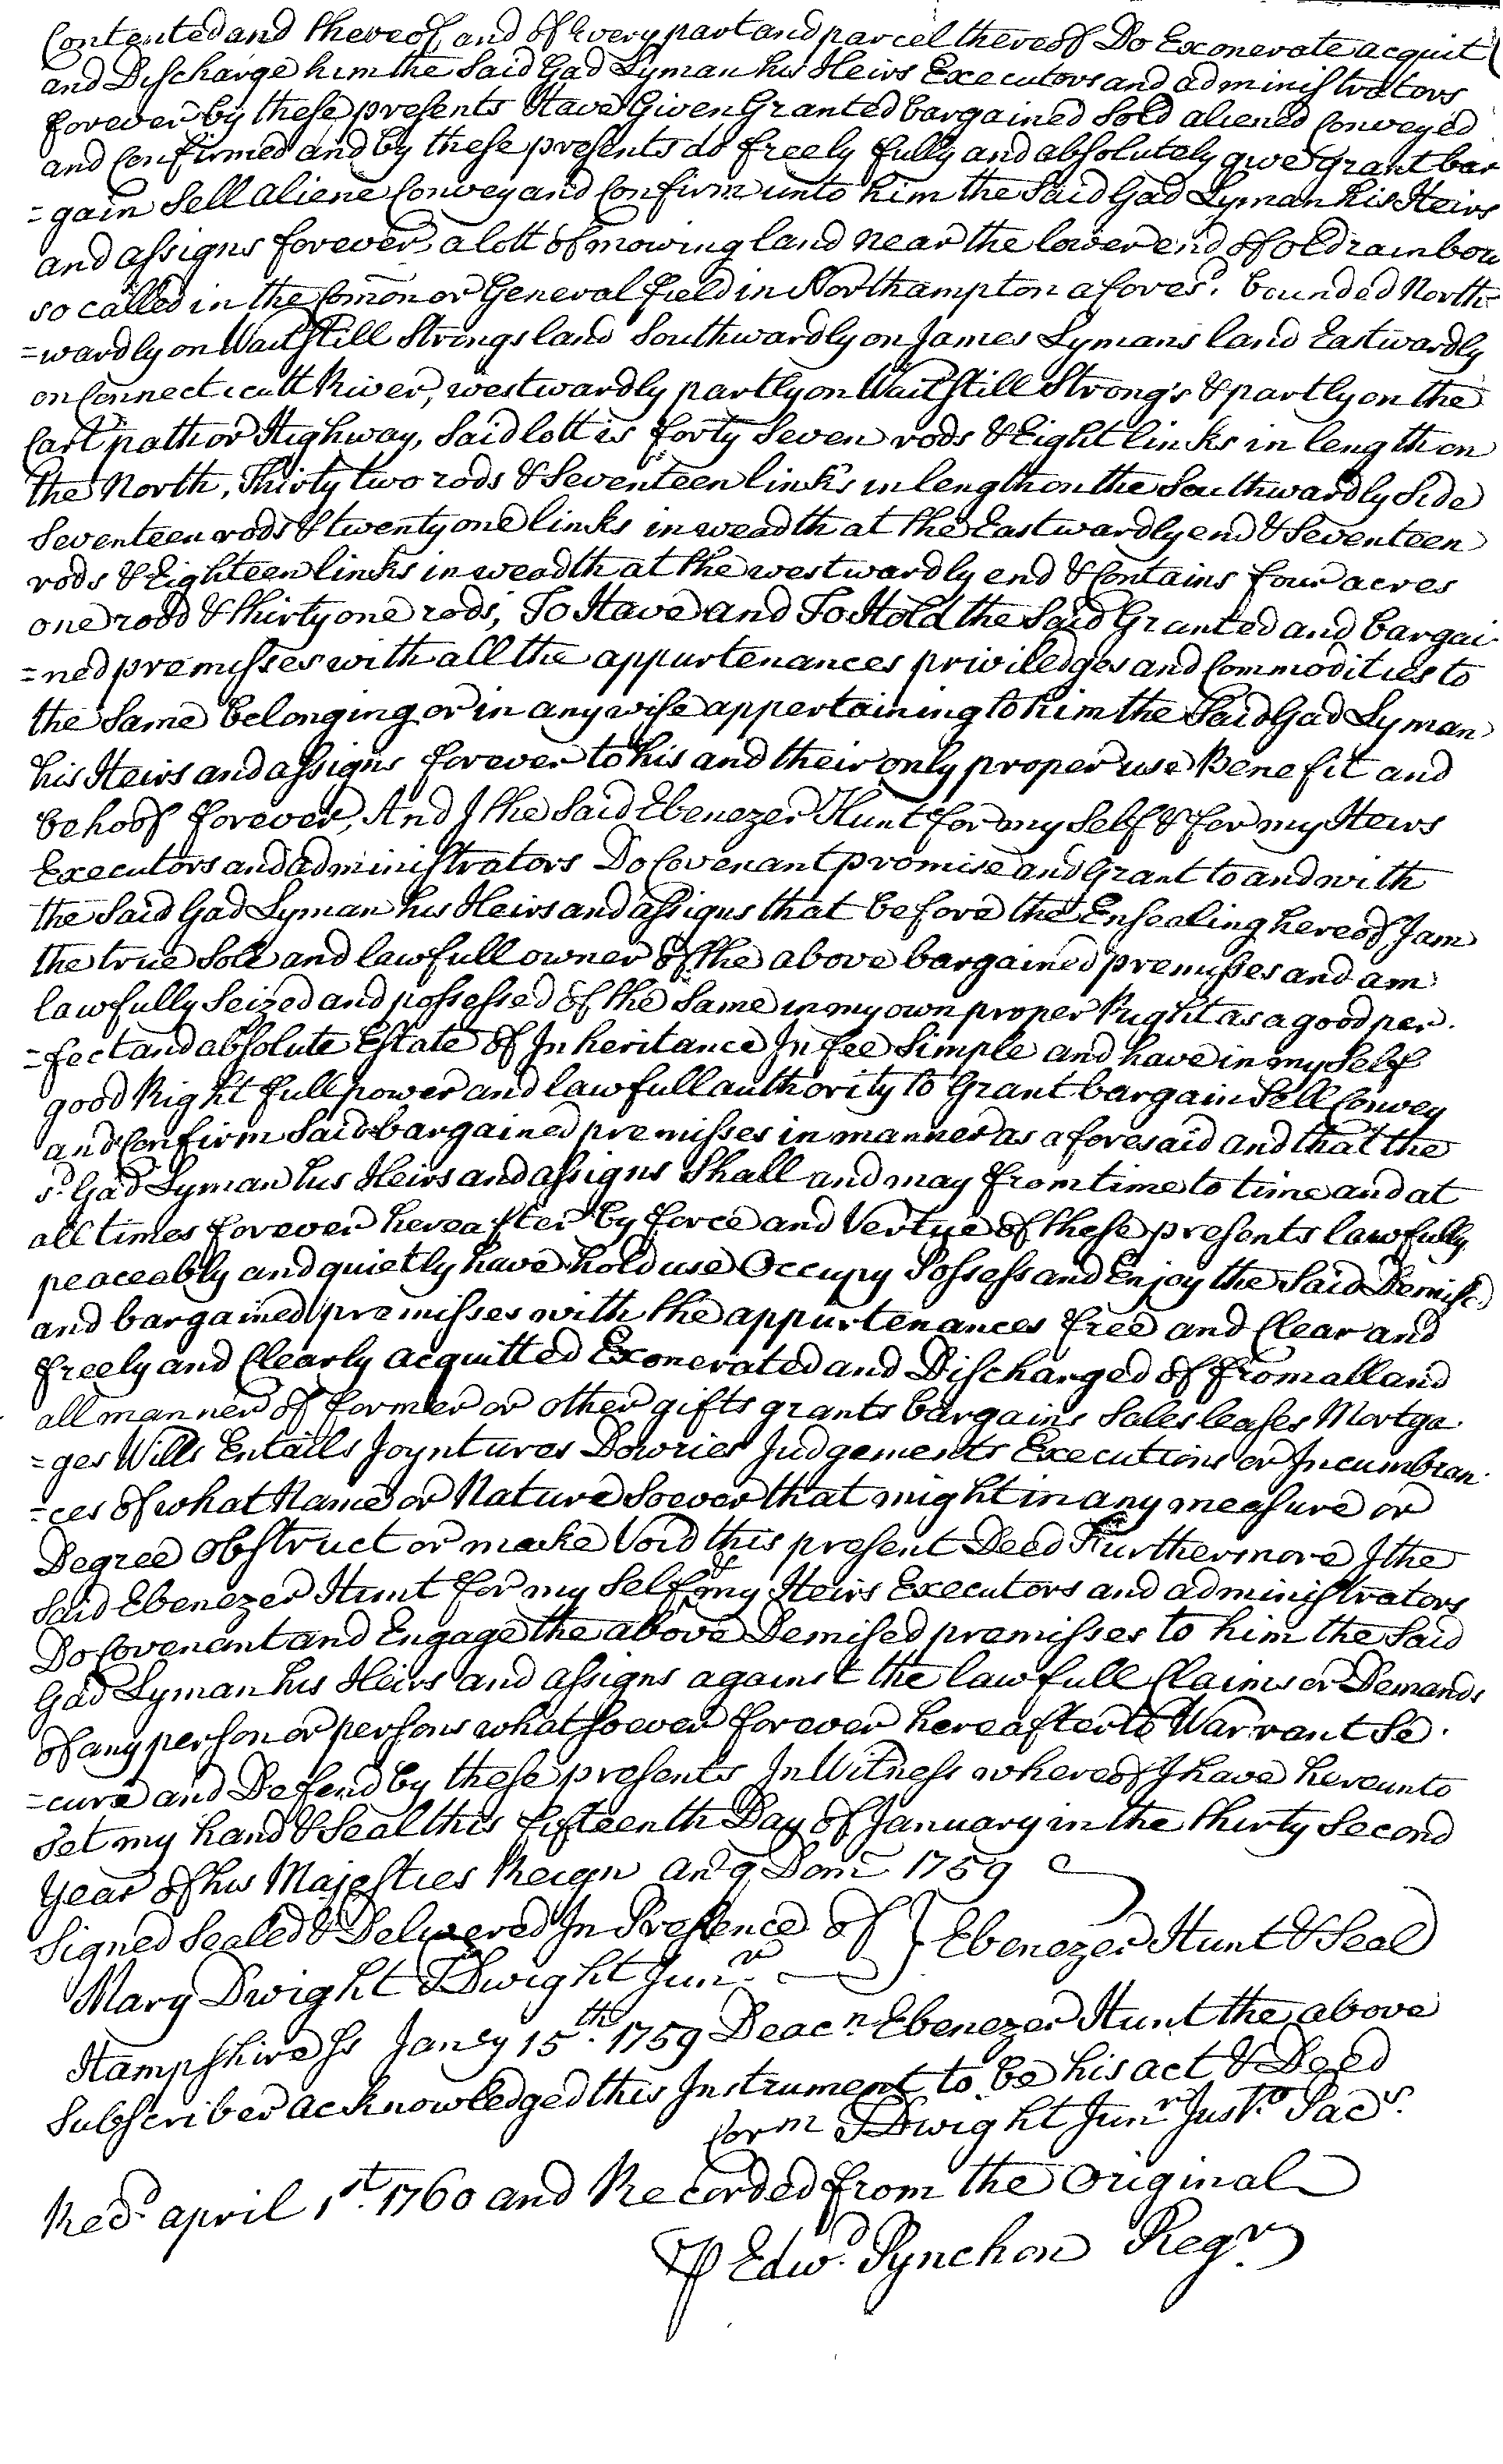 Contented and thereof and of Every part and parcel thereof Do Exonerate acquit
and Discharge him the Said Gad Lyman his Heirs Executors and administrators
forever by these presents Have Given Granted bargained Sold aliened Conveyed
and Confirmed and by these presents do freely fully and absolutely give grant bar
=gain Sell aliene Convey and Confirm unto him the Said Gad Lyman his Heirs
and assigns forever a lott of mowing land near the lower end of old rainbow
so called in the Comon or General field in Northampton afores.d bounded North
=wardly on Waitstill Strongs land Southwardly on James Lymans land Eastwardly
on Connecticutt River, westwardly partly on Waitstill Strong's & partly on the
Cart path or Highway, Said lott is forty Seven rods & Eight links in length on
the North, Thirty two rods & Seventeen links in length on the Southwardly Side
Seventeen rods & twenty one links in weadth at the Eastwardly end & Seventeen
rods & Eighteen links in weadth at the westwardly end & Contains four acres
one rood & thirty one rods, To Have and To Hold the Said Granted and bargai
=ned premisses with all the appurtenances priviledges and Commodities to
the Same belonging or in any wise appertaining to him the Said Gad Lyman
his Heirs and assigns forever to his and their only proper use Benefit and
behoof forever, And I the Said Ebenezer Hunt for my Self & for my Heirs
Executors and administrators Do Covenant promise and Grant to and with
the Said Gad Lyman his Heirs and assigns that before the Ensealing hereof I am
the true Sole and lawfull owner of the above bargained premisses and am
lawfully Seized and possessed of the Same in my own proper Right as a good per.
=fect and absolute Estate of Inheritance In fee Simple and have in my Self
good Right full power and lawfull authority to Grant bargain Sell Convey
and Confirm Said bargained premisses in manner as aforesaid and that the
s.d Gad Lyman his Heirs and assigns Shall and may from time to time and at
all times forever hereafter by force and Vertue of these presents lawfully
peaceably and quietly have hold use Occupy Possess and Enjoy the Said Demised
and bargained premisses with the appurtenances free and Clear and
freely and Clearly acquitted Exonerated and Discharged of from all and
all manner of former or other gifts grants bargains Sales leases Mortga
=ges Wills Entails Joyntures Dowries Judgements Executions or Incumbran
=ces of what Name or Nature Soever that might in any measure or
Degree obstruct or make Void this present Deed Furthermore I the
Said Ebenezer Hunt for my Self & my Heirs Executors and administrators
Do Covenant and Engage the above Demised premisses to him the Said
Gad Lyman his Heirs and assigns against the lawfull Claims or Demands
of any person or persons whatsoever forever hereafter to Warrant Se
=cure and Defend by these presents In Witness whereof I have hereunto
Set my hand & Seal this fifteenth Day of January in the thirty Second
Year of his Majesties Reign Anoq Domi 1759
Signed Sealed & Delivered In Presence of } Ebenezer Hunt & Seal
Mary Dwight TDwight Junr.
Hampshire Ss Janry 15th. 1759 Deacn. Ebenezer Hunt the above
Subscriber acknowledged this Instrument to be his act & Deed
Corm TDwight Junr Justo. Pacs.
Recd. april 1st. 1760 and Recorded from the Original
P Edwd. Pynchon Regr.